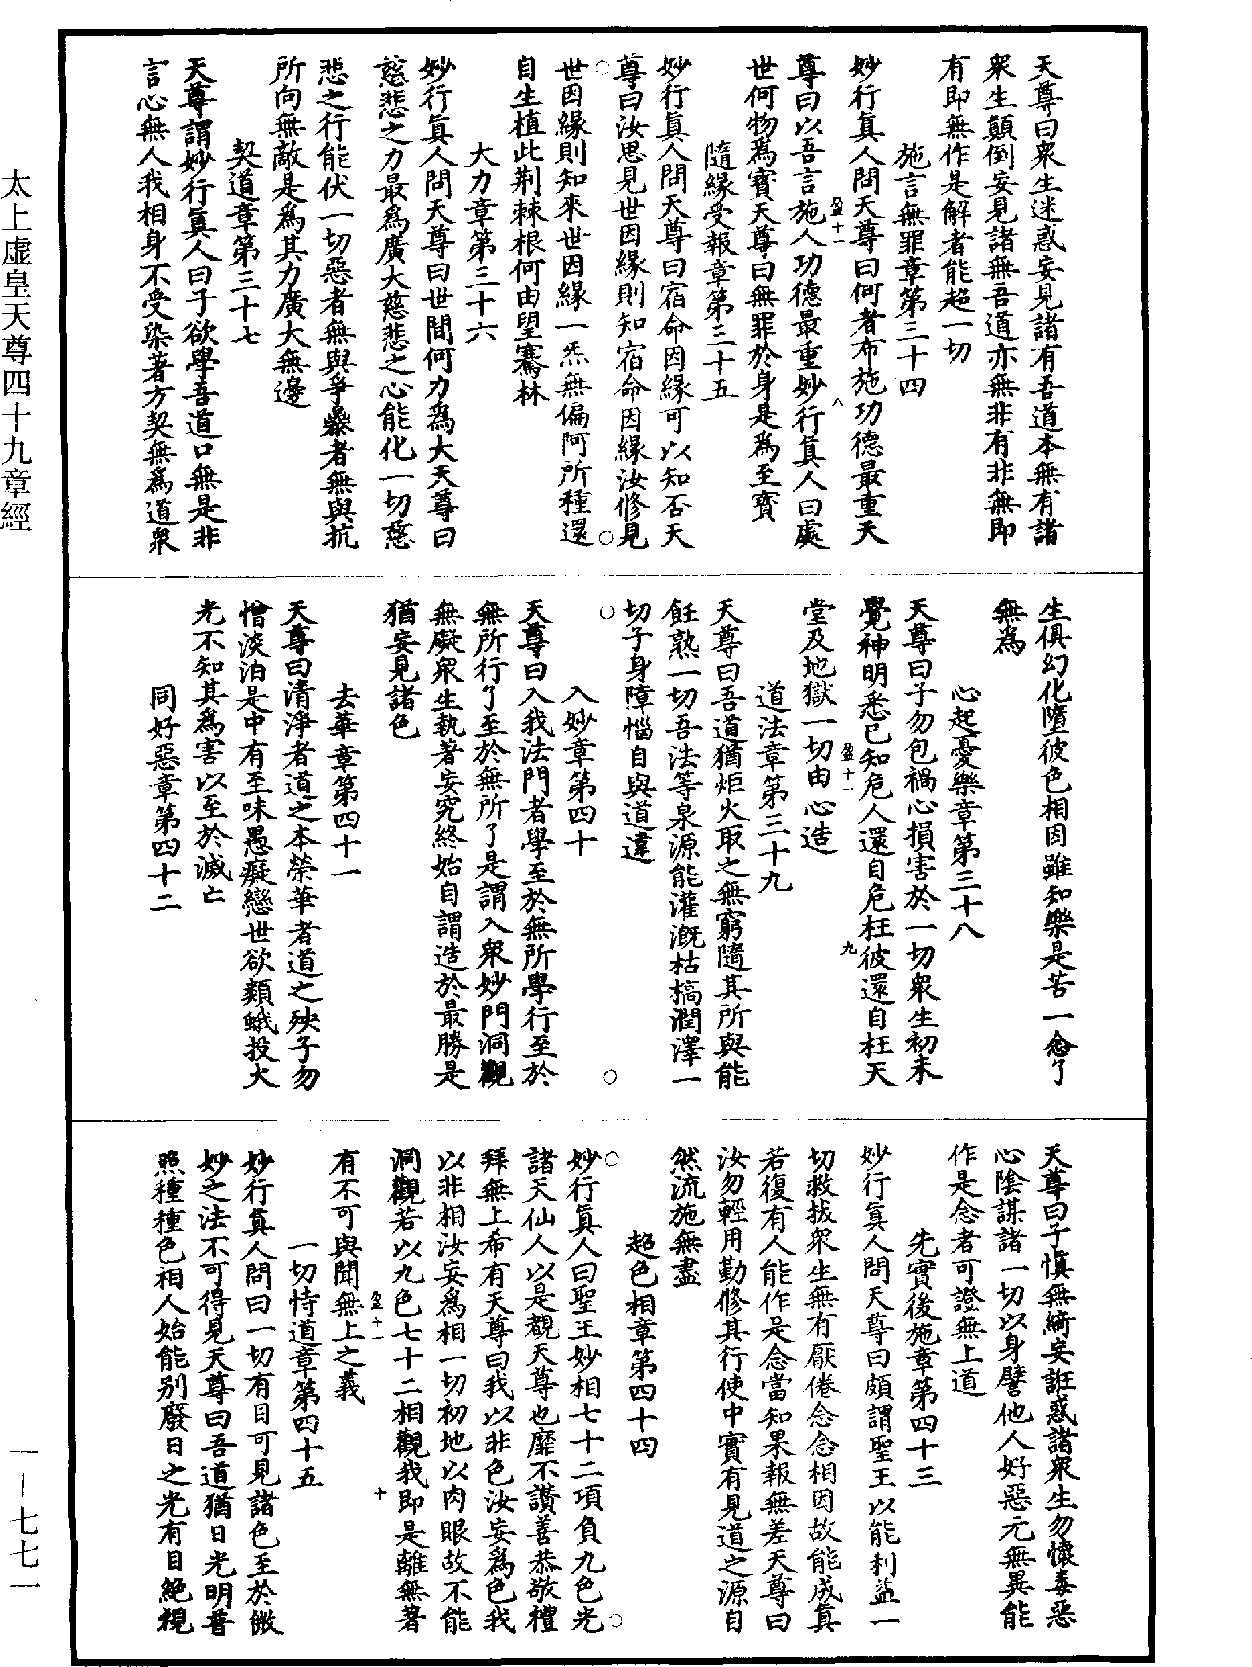 天尊曰衆生迷惑妄見諸有吾道本無有諸
衆生顛倒妄見諸無吾道亦無非有非無即
有即無作是解者能超一切
施言無罪章第三十四
妙行真人問天尊曰何者布施功德最重天
尊曰以吾言施人功德最重妙行真人曰處
世何物爲寶天尊曰無罪於身是爲至寶
隨緣受報章第三十五
妙行真人問天尊曰宿命因緣可以知否天
尊曰汝思見世因緣則知宿命因緣汝修見
世因緣則知來世因緣一炁無偏阿所種還
自生植此荆棘根何由望騫林
大力章第三十六
妙行真人問天尊曰世間何力爲大天尊曰
慈悲之力最爲廣大慈悲之心能化一切慈
悲之行能伏一切惡者無與爭暴者無與抗
所向無敵是爲其力廣大無邊
契道章第三十七
天尊謂妙行真人曰子欲學吾道口無是非
言心無人我相身不受染著方契無爲道衆
生俱幻化隨彼色相因雖知樂是苦一念了
無為
心起憂樂章第三十八
天尊曰子勿包禍心損害於一切衆生初未
覺神明悉已知危人還自危枉彼還自枉天
堂及地獄一切由心造
道法章第三十九
天尊曰吾道猶炬火取之無窮隨其所與能
飪熟一切吾法等泉源能灌溉枯槁潤澤一
切子身障惱自與道違
入妙章第四十
天尊曰入我法門者學至於無所學行至於
無所行了至於無所了是謂入衆妙門洞觀
無礙衆生執著妄究終始自謂造於最勝是
猶妄見諸色
去華章第四十一
天尊曰清淨者道之本榮華者道之殃子勿
憎淡泊是中有至味愚癡戀世欲類蛾投火
光不知其爲害以至於滅亡
同好惡章第四十二
天尊曰子慎無綺妄誑惑諸衆生勿懷毒惡
心陰謀諸一切以身譬他人好惡元無異能
作是念者可證無上道
先實後施章第四十三
妙行真人問天尊曰頗謂聖王以能利益一
切救拔衆生無有厭倦念念相因故能成真
若復有人能作是念當知果報無差天尊曰
汝勿輕用勤修其行使中實有見道之源自
然流施無盡
超色相章第四十四
妙行真人曰聖王妙相七十二項負九色光
諸天仙人以是觀天尊也靡不讚善恭敬禮
拜無上希有天尊曰我以非色汝妄爲色我
以非相汝妄爲相一切初地以肉眼故不能
洞觀若以九色七十二相觀我即是離無著
有不可與聞無上之義
一切恃道章第四十五
妙行真人問曰一切有目可見諸色至於微
妙之法不可得見天尊曰吾道猶日光明普
照種種色相人始能别廢日之光有目絕視
盈十一
八
盈十一
九
盈十一
十
太上虛皇天尊四十九章經
一—七七一